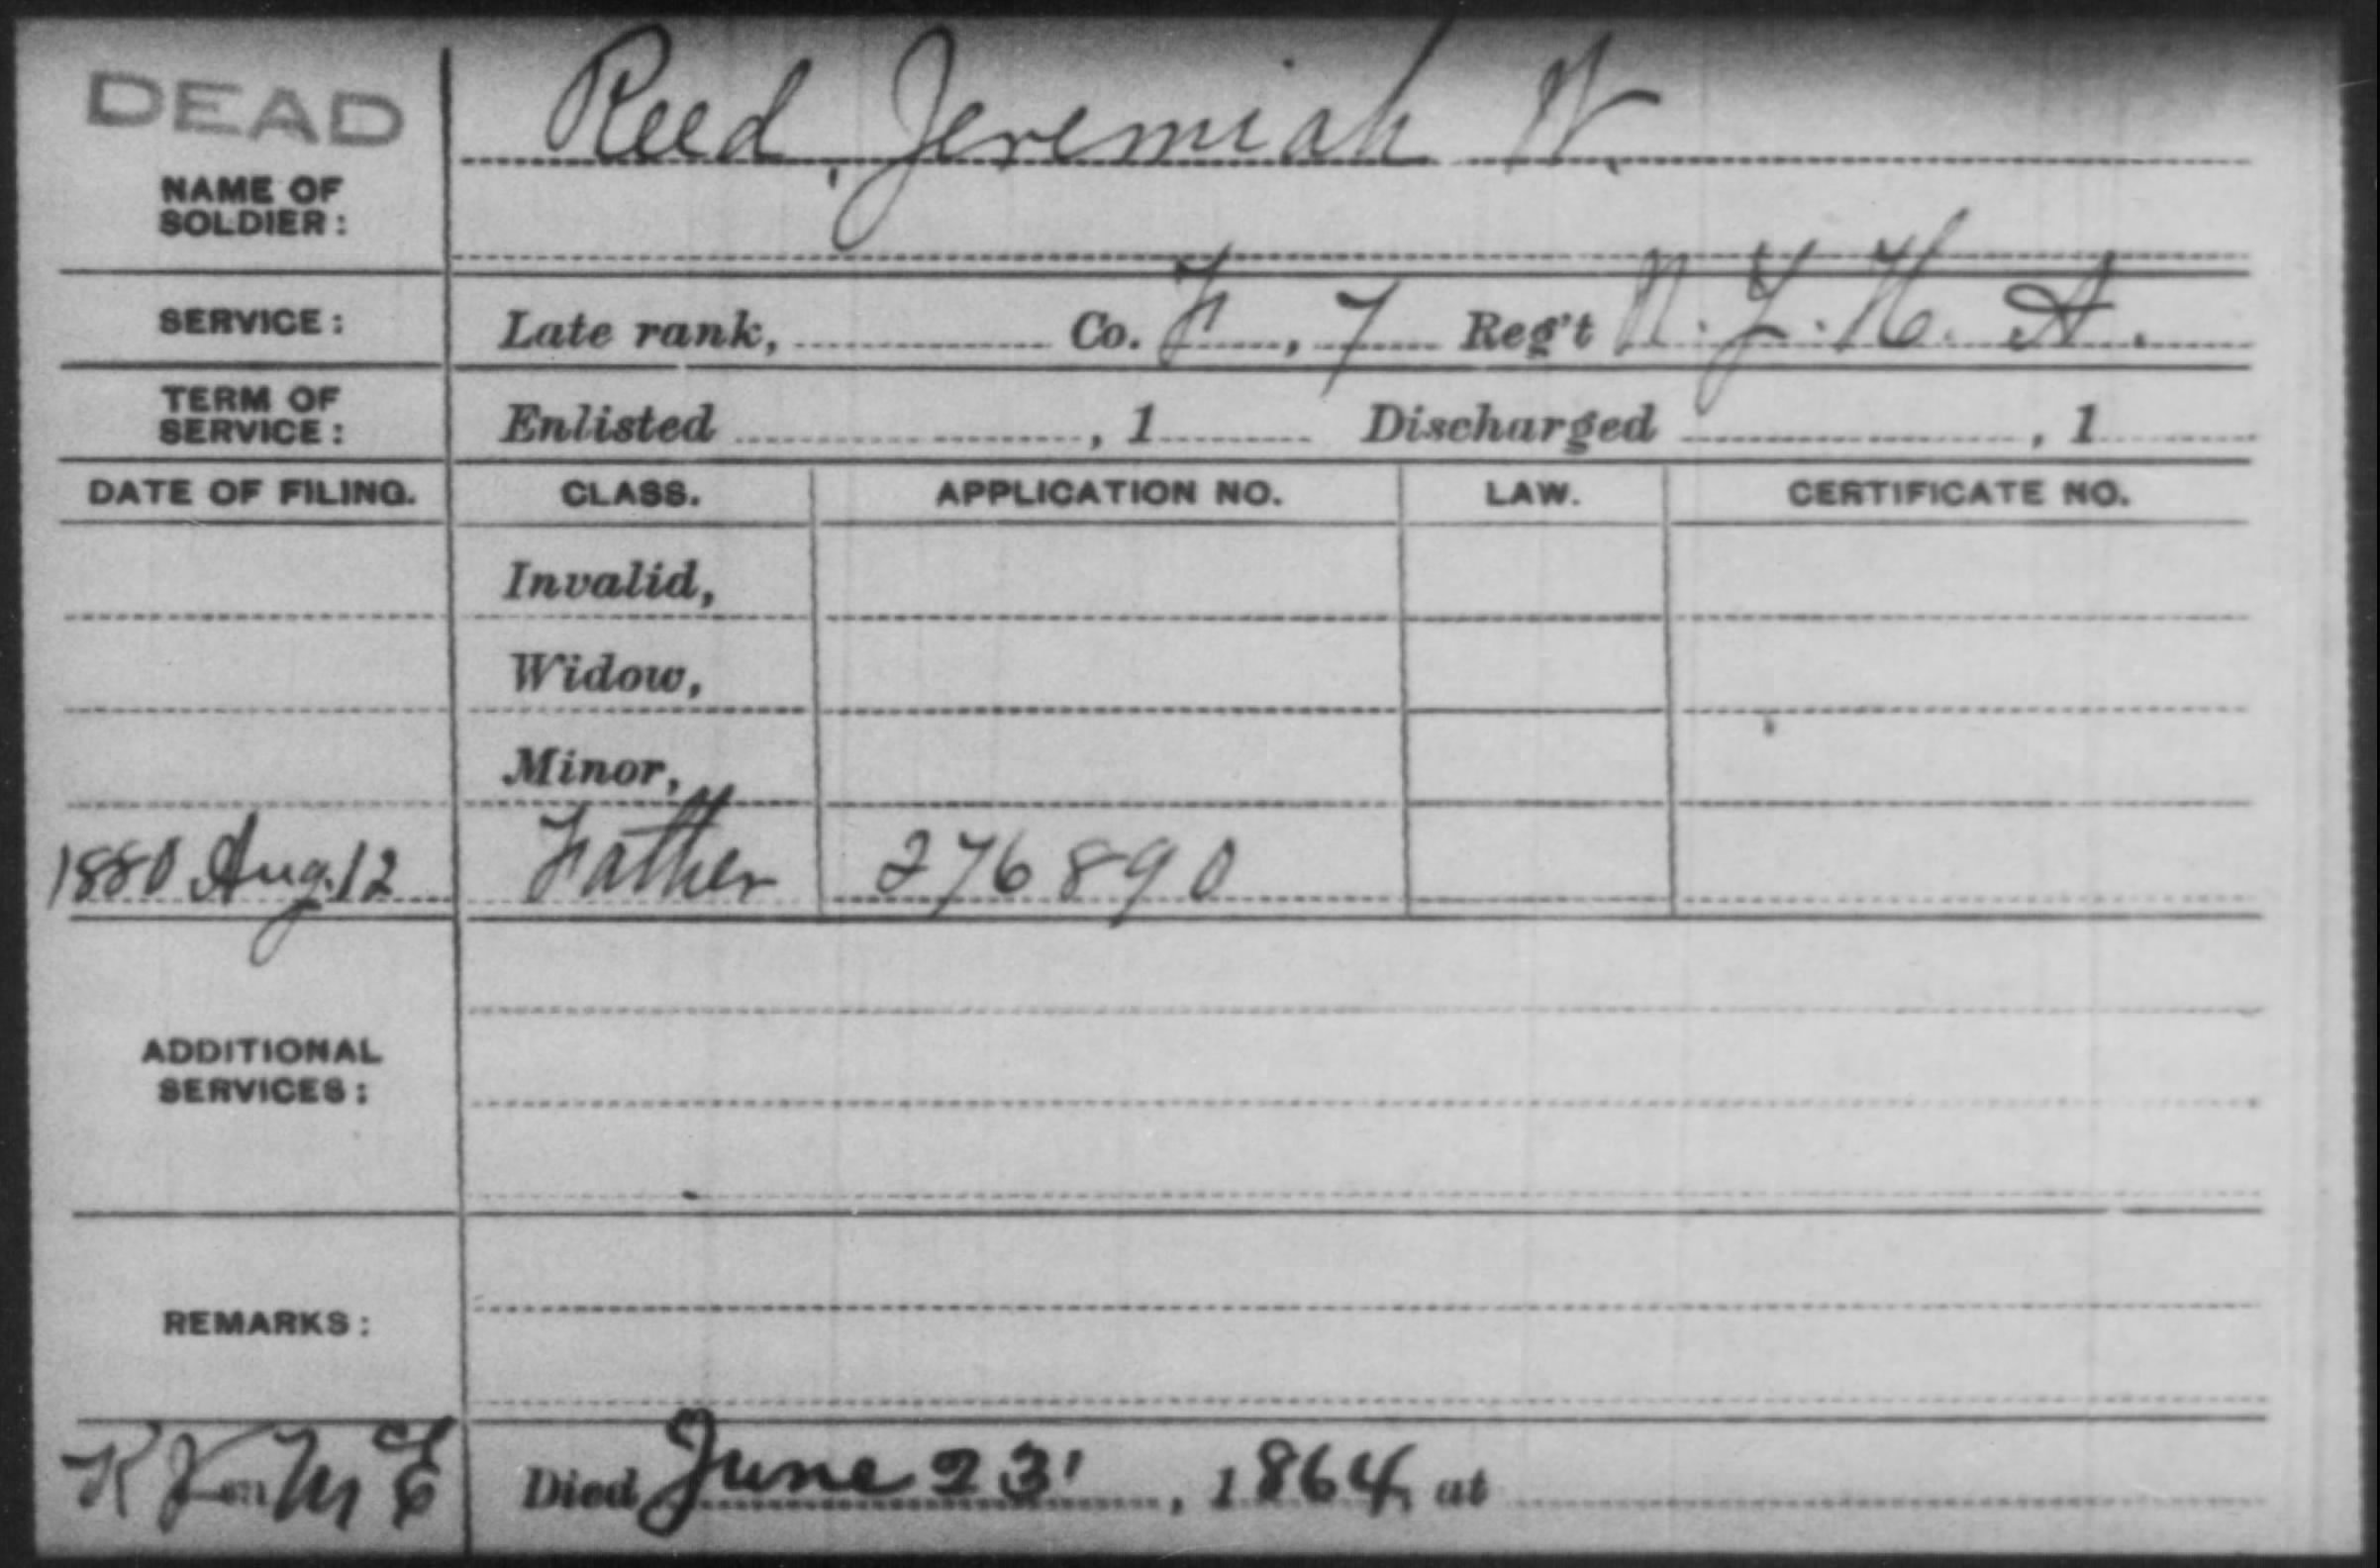 DEAD
Reed, Jeremiah W.
NAME OF
SOLDIER:
SERVICE: Late rank, Co. F, 7 Reg't N. Y. H. A.
TERM OF
SERVICE: Enlisted , 1 Discharged , 1
DATE OF FILING. CLASS. APPLICATION NO. LAW. CERTIFICATE NO.
Invalid,
Widow,
Minor,
1880 Aug. 12 Father 276890
ADDITIONAL
SERVICES:
REMARKS:
Died June 23, 1864, at